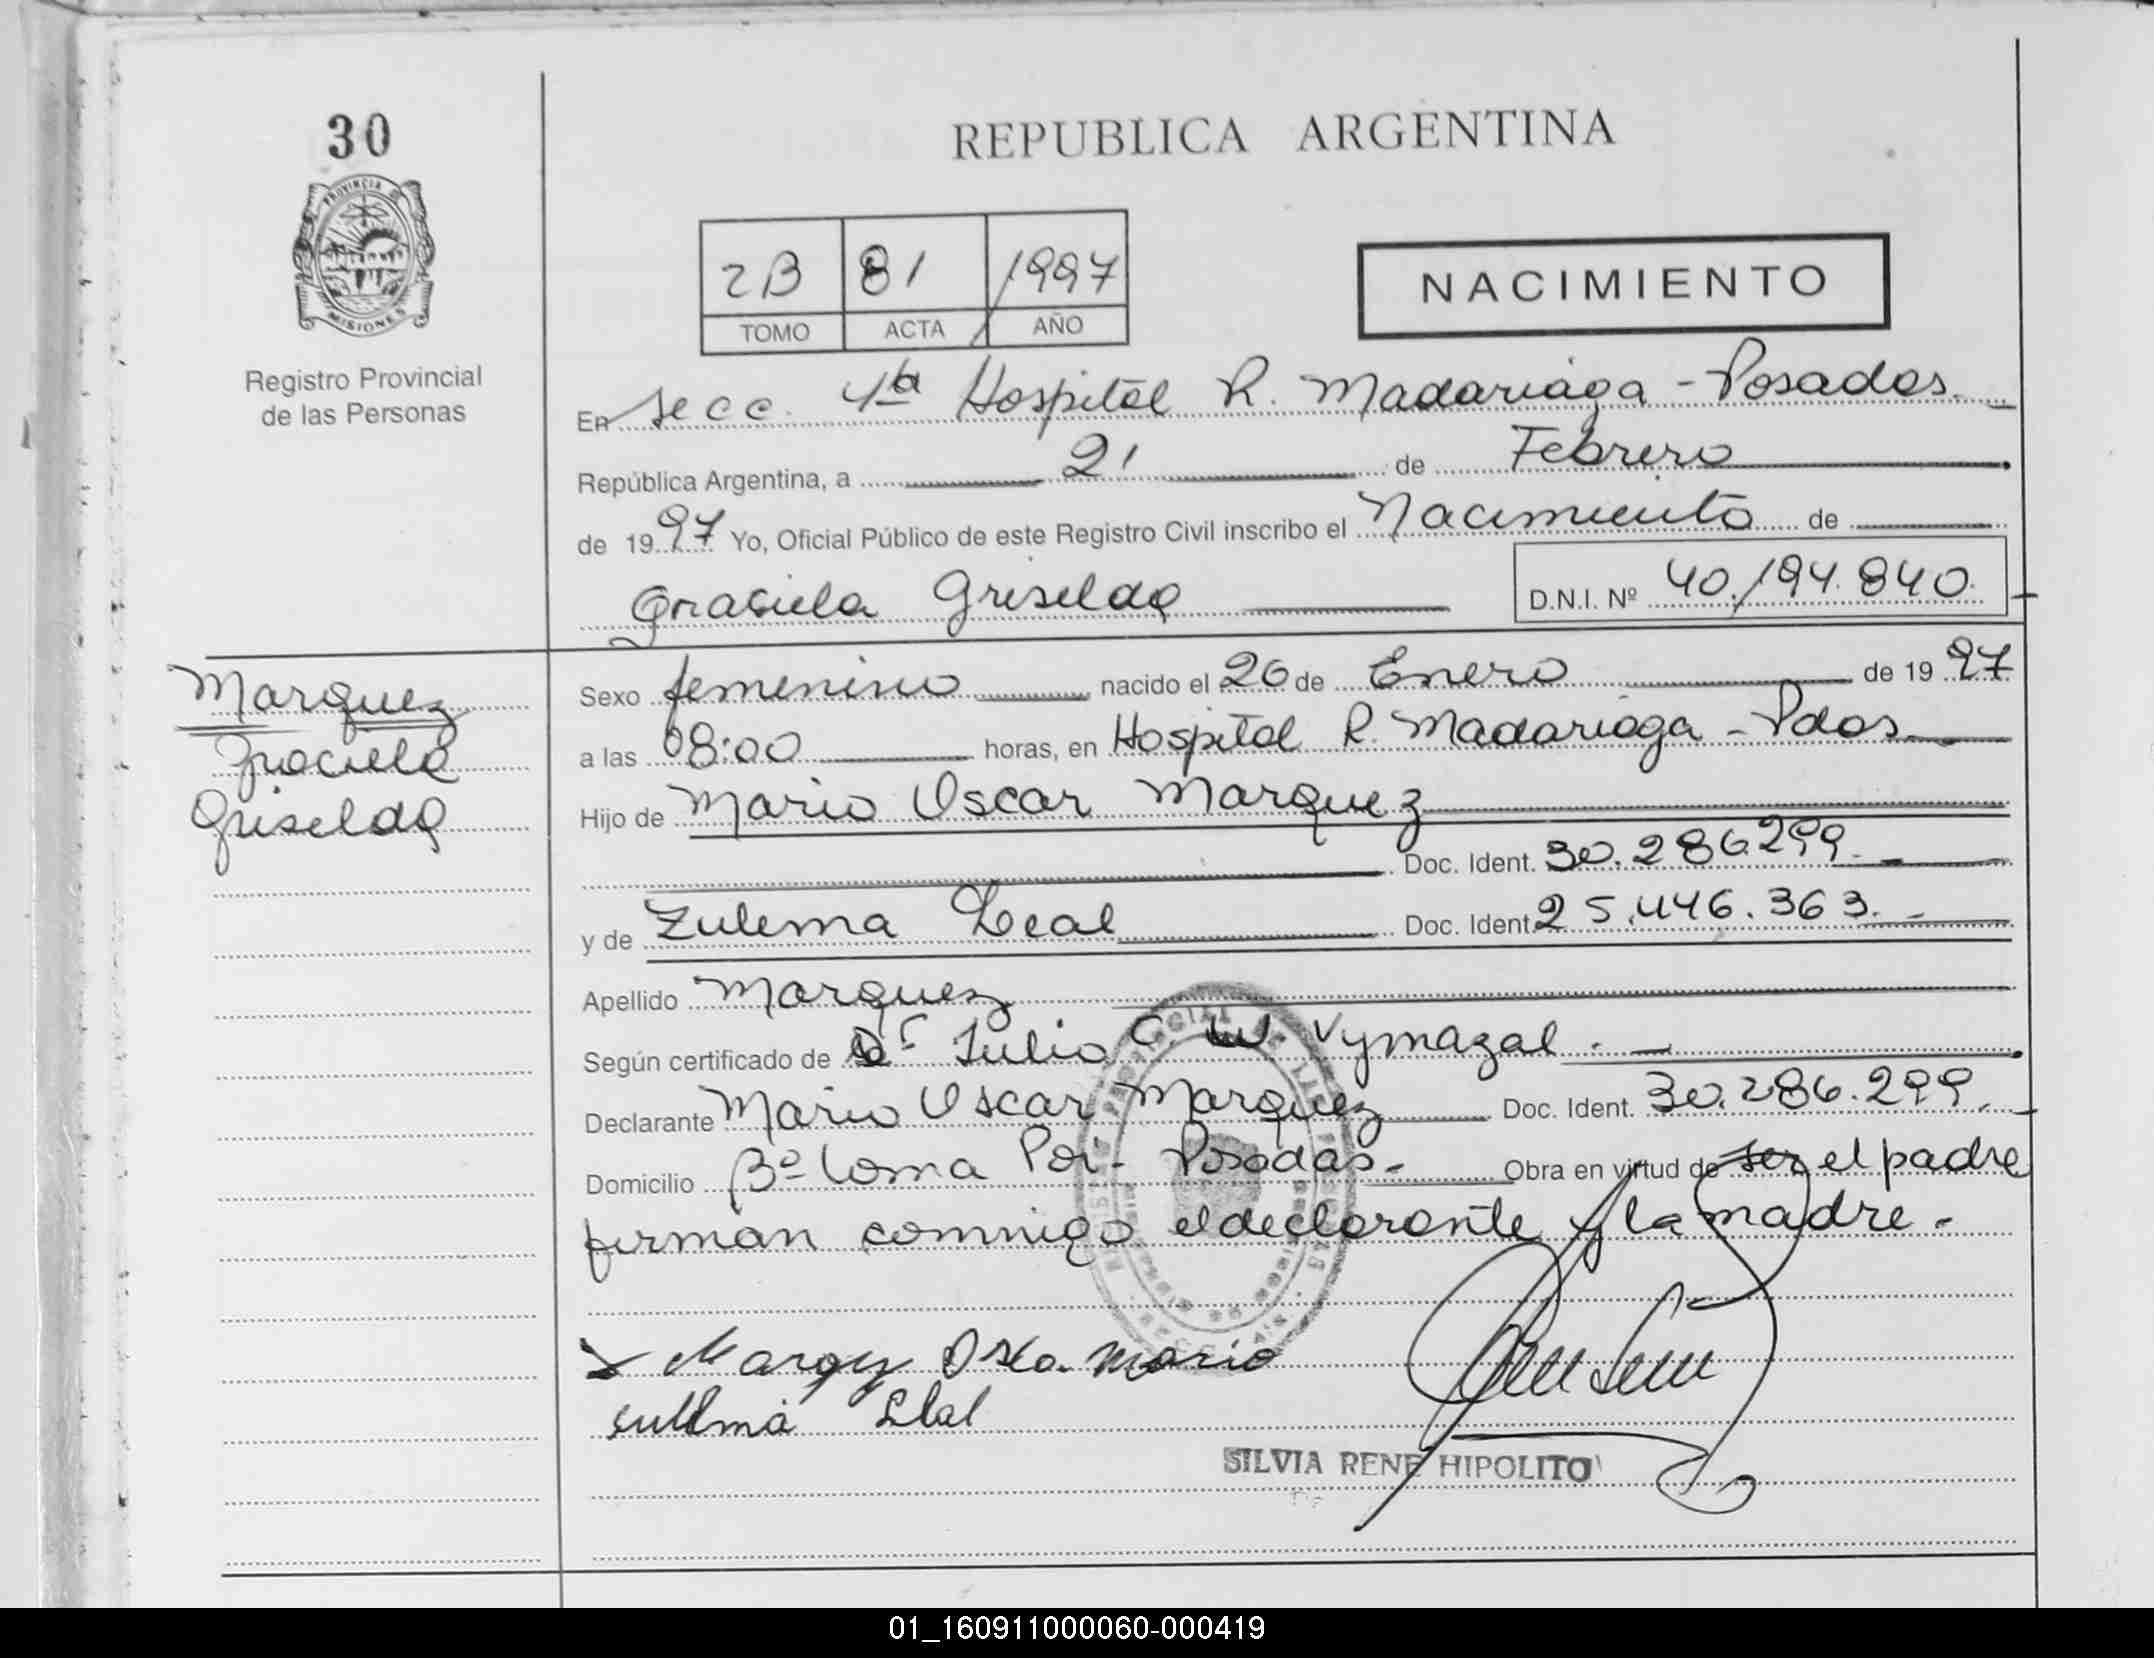 30
PROVINCIA DE
MISIONES
Registro Provincial
de las Personas
REPUBLICA ARGENTINA
2B 81 1997
TOMO ACTA AÑO
NACIMIENTO
En Secc. 4ta Hospital R. Madariaga - Posadas.
República Argentina, a 21 de Febrero
de 1997 Yo, Oficial Público de este Registro Civil inscribo el Nacimiento de
Graciela Griselda D.N.I. Nº 40.194.840.
Marquez
Graciela
Griselda
Sexo femenino nacido el 26 de Enero de 1997
a las 08:00 horas, en Hospital R. Madariaga - Pdas.
Hijo de Mario Oscar Marquez
Doc. Ident. 30.286.299.
y de Zulema Leal Doc. Ident. 25.446.363.
Apellido Marquez
Según certificado de Dr Julio C W Vymazal.
Declarante Mario Oscar Marquez Doc. Ident. 30.286.299.
Domicilio Bº Loma Poi - Posadas - Obra en virtud de ser el padre
firman conmigo el declarante y la madre.
Leal
SILVIA RENE HIPOLITO
01_160911000060-000419